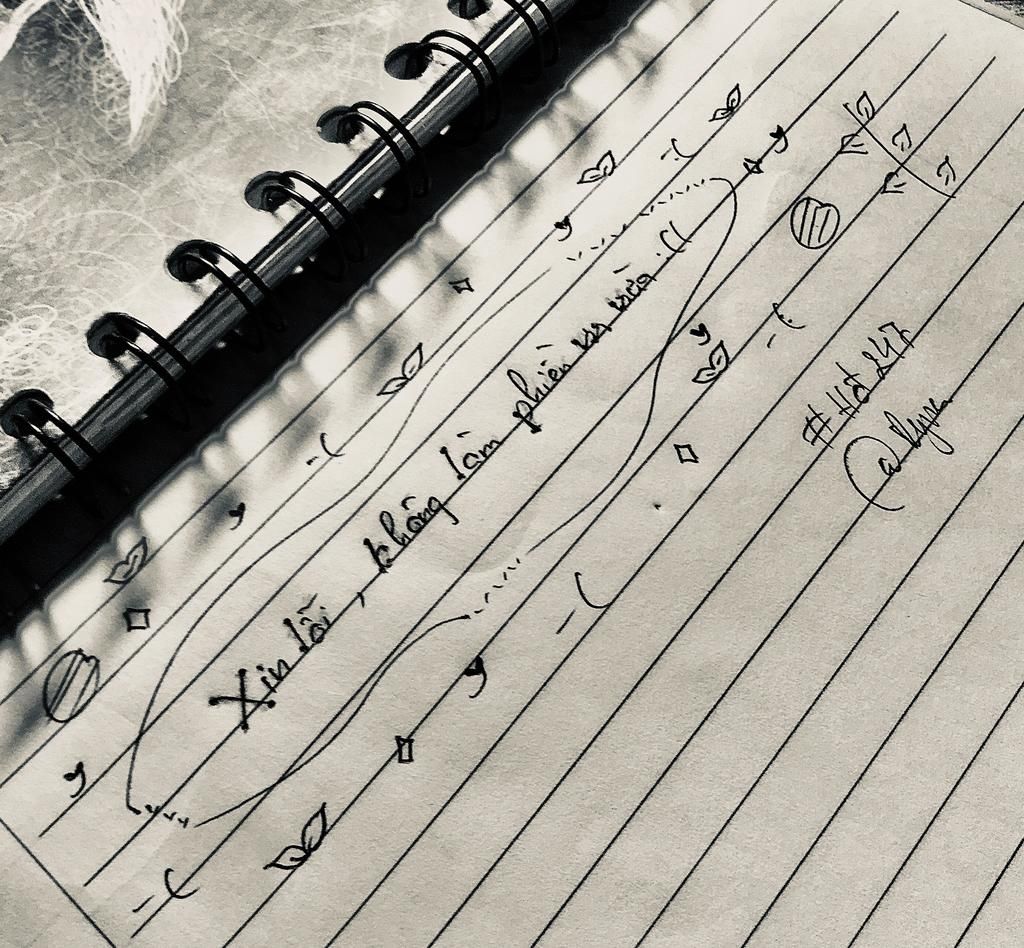 Xin lỗi, không làm phiền nx nữa :((
#Hđ247